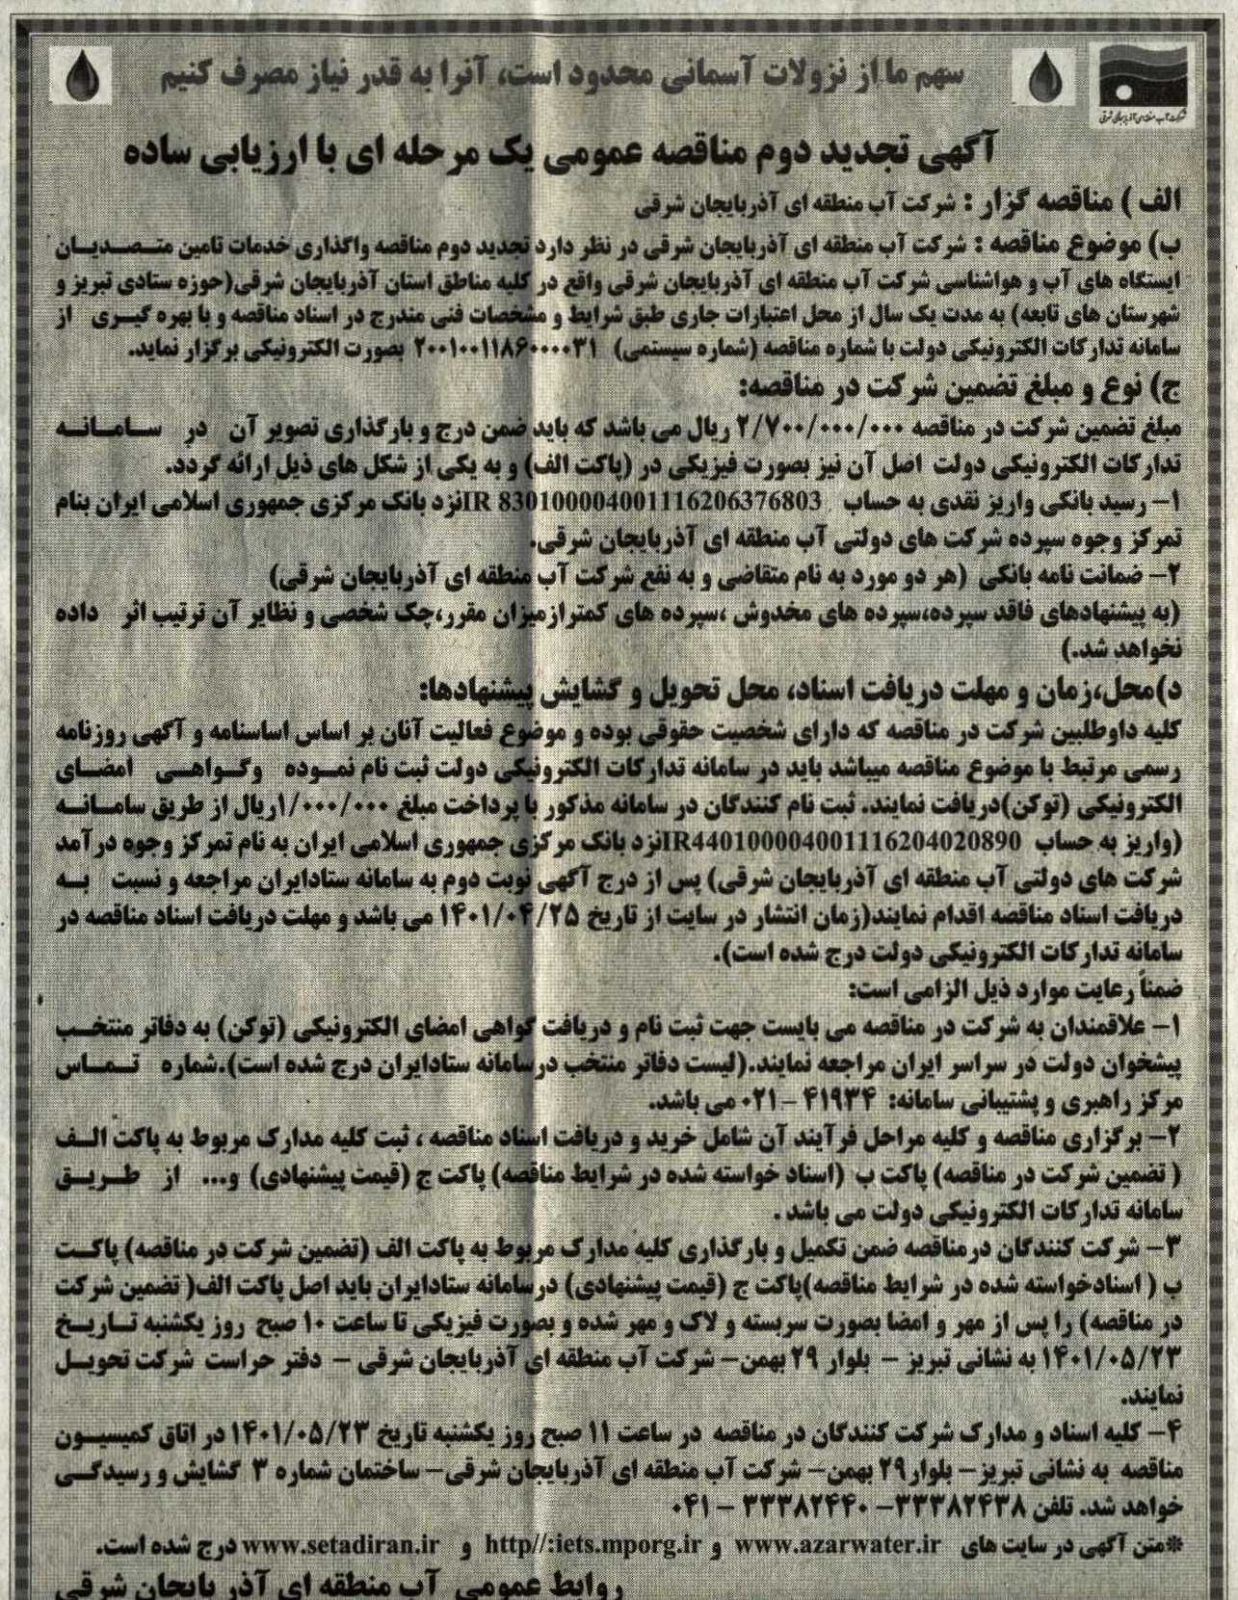 سهم ما از نزولات آسمانی محدود است، آنرا به قدر نیاز مصرف کنیم
شرکت آب منطقه‌ای آذربایجان شرقی
آگهی تجدید دوم مناقصه عمومی یک مرحله ای با ارزیابی ساده
الف ) مناقصه گزار : شرکت آب منطقه ای آذربایجان شرقی
ب) موضوع مناقصه : شرکت آب منطقه ای آذربایجان شرقی در نظر دارد تجدید دوم مناقصه واگذاری خدمات تامین متصدیان
ایستگاه های آب و هواشناسی شرکت آب منطقه ای آذربایجان شرقی واقع در کلیه مناطق استان آذربایجان شرقی(حوزه ستادی تبریز و
شهرستان های تابعه) به مدت یک سال از محل اعتبارات جاری طبق شرایط و مشخصات فنی مندرج در اسناد مناقصه و با بهره گیری از
سامانه تدارکات الکترونیکی دولت با شماره مناقصه (شماره سیستمی) ۲۰۰۱۰۰۱۱۸۶۰۰۰۰۳۱ بصورت الکترونیکی برگزار نماید.
ج) نوع و مبلغ تضمین شرکت در مناقصه:
مبلغ تضمین شرکت در مناقصه ۲/۷۰۰/۰۰۰/۰۰۰ ریال می باشد که باید ضمن درج و بارگذاری تصویر آن در سامانه
تدارکات الکترونیکی دولت اصل آن نیز بصورت فیزیکی در (پاکت الف) و به یکی از شکل های ذیل ارائه گردد.
۱- رسید بانکی واریز نقدی به حساب IR 830100004001116206376803نزد بانک مرکزی جمهوری اسلامی ایران بنام
تمرکز وجوه سپرده شرکت های دولتی آب منطقه ای آذربایجان شرقی.
۲- ضمانت نامه بانکی (هر دو مورد به نام متقاضی و به نفع شرکت آب منطقه ای آذربایجان شرقی)
(به پیشنهادهای فاقد سپرده،سپرده های مخدوش ،سپرده های کمترازمیزان مقرر،چک شخصی و نظایر آن ترتیب اثر داده
نخواهد شد.)
د)محل،زمان و مهلت دریافت اسناد، محل تحویل و گشایش پیشنهادها:
کلیه داوطلبین شرکت در مناقصه که دارای شخصیت حقوقی بوده و موضوع فعالیت آنان بر اساس اساسنامه و آگهی روزنامه
رسمی مرتبط با موضوع مناقصه میباشد باید در سامانه تدارکات الکترونیکی دولت ثبت نام نموده وگواهی امضای
الکترونیکی (توکن)دریافت نمایند. ثبت نام کنندگان در سامانه مذکور با پرداخت مبلغ ۱/۰۰۰/۰۰۰ریال از طریق سامانه
(واریز به حساب IR440100004001116204020890نزد بانک مرکزی جمهوری اسلامی ایران به نام تمرکز وجوه درآمد
شرکت های دولتی آب منطقه ای آذربایجان شرقی) پس از درج آگهی نوبت دوم به سامانه ستادایران مراجعه و نسبت به
دریافت اسناد مناقصه اقدام نمایند(زمان انتشار در سایت از تاریخ ۱۴۰۱/۰۴/۲۵ می باشد و مهلت دریافت اسناد مناقصه در
سامانه تدارکات الکترونیکی دولت درج شده است).
ضمناً رعایت موارد ذیل الزامی است:
۱- علاقمندان به شرکت در مناقصه می بایست جهت ثبت نام و دریافت گواهی امضای الکترونیکی (توکن) به دفاتر منتخب
پیشخوان دولت در سراسر ایران مراجعه نمایند.(لیست دفاتر منتخب درسامانه ستادایران درج شده است).شماره تماس
مرکز راهبری و پشتیبانی سامانه: ۴۱۹۳۴ -۰۲۱ می باشد.
۲- برگزاری مناقصه و کلیه مراحل فرآیند آن شامل خرید و دریافت اسناد مناقصه ، ثبت کلیه مدارک مربوط به پاکت الف
( تضمین شرکت در مناقصه) پاکت ب (اسناد خواسته شده در شرایط مناقصه) پاکت ج (قیمت پیشنهادی) و... از طریق
سامانه تدارکات الکترونیکی دولت می باشد .
۳- شرکت کنندگان درمناقصه ضمن تکمیل و بارگذاری کلیه مدارک مربوط به پاکت الف (تضمین شرکت در مناقصه) پاکت
ب ( اسنادخواسته شده در شرایط مناقصه)پاکت ج (قیمت پیشنهادی) درسامانه ستادایران باید اصل پاکت الف( تضمین شرکت
در مناقصه) را پس از مهر و امضا بصورت سربسته و لاک و مهر شده و بصورت فیزیکی تا ساعت ۱۰ صبح روز یکشنبه تاریخ
۱۴۰۱/۰۵/۲۳ به نشانی تبریز - بلوار ۲۹ بهمن- شرکت آب منطقه ای آذربایجان شرقی - دفتر حراست شرکت تحویل
نمایند.
۴- کلیه اسناد و مدارک شرکت کنندگان در مناقصه در ساعت ۱۱ صبح روز یکشنبه تاریخ ۱۴۰۱/۰۵/۲۳ در اتاق کمیسیون
مناقصه به نشانی تبریز- بلوار۲۹ بهمن- شرکت آب منطقه ای آذربایجان شرقی- ساختمان شماره ۳ گشایش و رسیدگی
خواهد شد. تلفن ۳۳۳۸۲۴۳۸- ۳۳۳۸۲۴۴۰ - ۰۴۱
*متن آگهی در سایت های www.azarwater.ir و http//:iets.mporg.ir و www.setadiran.ir درج شده است.
روابط عمومی آب منطقه ای آذربایجان شرقی